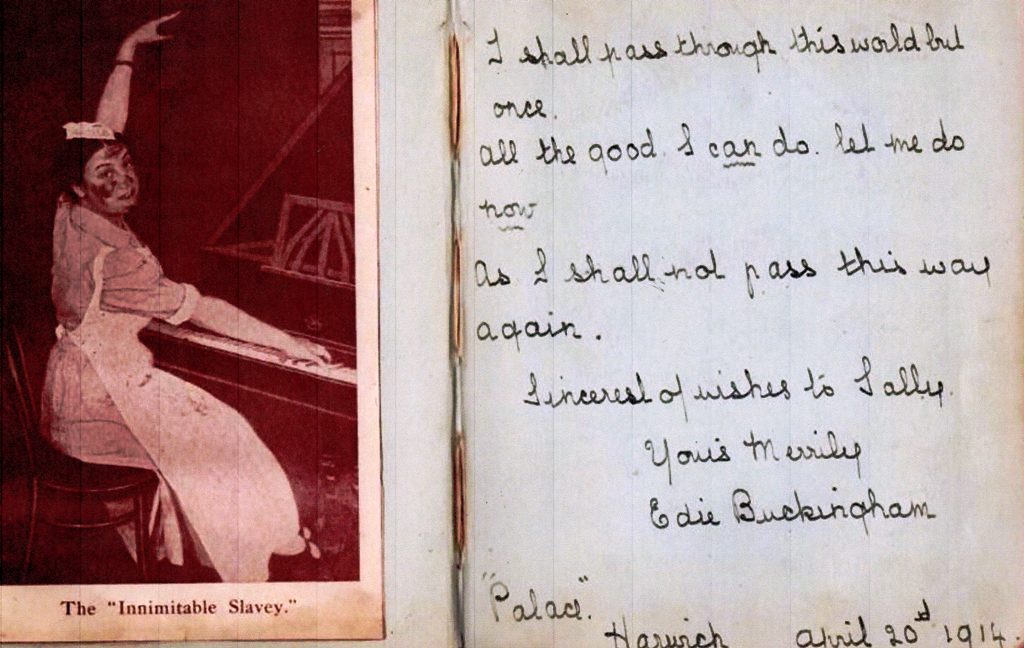 The "Innimitable Slavey."
I shall pass through this world but
once.
All the good. I can do. let me do
now
As I shall not pass this way
again.
Sincerest of wishes to Sally.
Yours Merrily
Edie Buckingham
"Palace".
Harwich April 20th 1914.